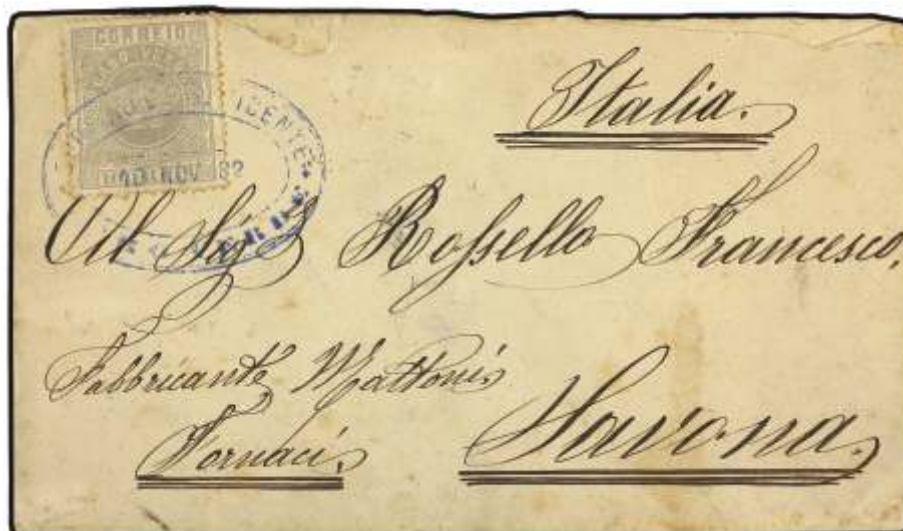 CORREIO
ICENTE
10 NOV 82
Italia.
Al Sig Rossello Francesco,
Fabbricante Mattoni
Fornaci,
Savona.